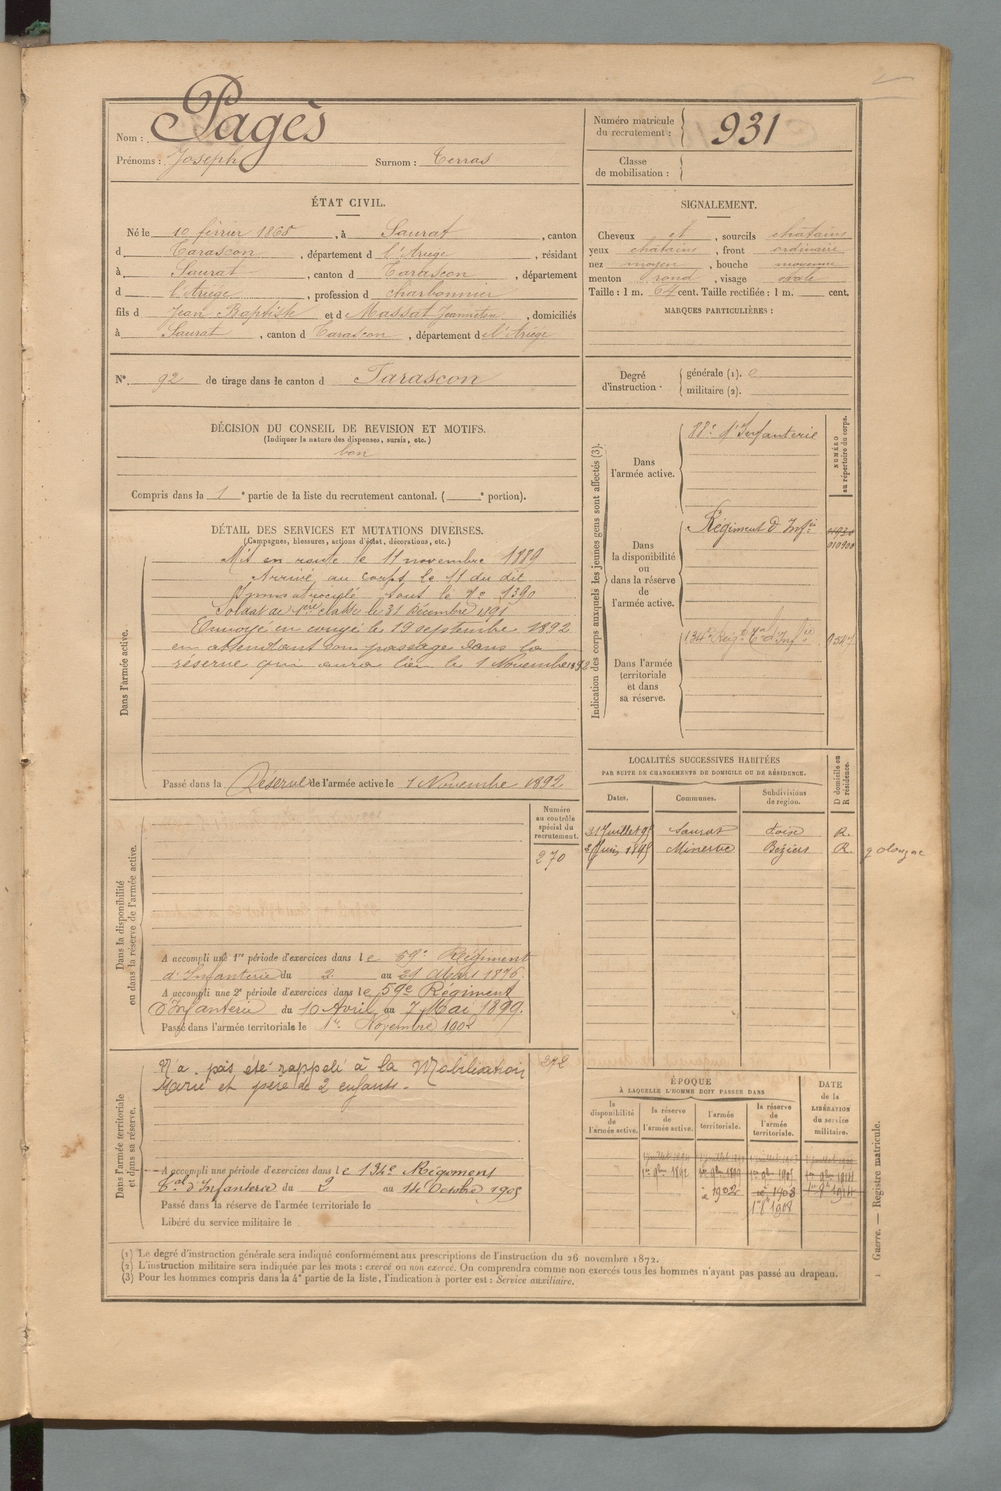 Nom : Pagès
Prénoms : Joseph Surnom : Terras
Numéro matricule du recrutement : 931
Classe de mobilisation :
ÉTAT CIVIL.
Né le 10 février 1868, à Saurat, canton
d Tarascon, département d l'Ariège, résidant
à Saurat, canton d Tarascon, département
d l'Ariège, profession d charbonnier
fils d Jean Baptiste et d Massat Jeanneton, domiciliés
à Saurat, canton d Tarascon, département d l'Ariège
N° 92 de tirage dans le canton d Tarascon
SIGNALEMENT.
Cheveux et, sourcils chatains
yeux chatains, front ordinaire
nez moyen, bouche moyenne
menton rond, visage ovale
Taille : 1 m. 64 cent. Taille rectifiée : 1 m. cent.
MARQUES PARTICULIÈRES :
Degré d'instruction. générale (1).
militaire (2).
DÉCISION DU CONSEIL DE REVISION ET MOTIFS.
(Indiquer la nature des dispenses, sursis, etc.)
bon
Compris dans la 1e partie de la liste du recrutement cantonal. ( e portion).
DÉTAIL DES SERVICES ET MUTATIONS DIVERSES.
(Campagnes, blessures, actions d'éclat, décorations, etc.)
Dans l'armée active.
Mis en route le 11 novembre 1889
Arrivé au corps le 11 du dit
Immatriculé sous le N° 1390
Soldat de 1ère classe le 31 Décembre
Envoyé en congé le 19 septembre 1892
en attendant son passage dans la
réserve qui aura lieu le 1 Novembre 1892
Passé dans la Réserve de l'armée active le 1 Novembre 1892
Indication des corps auxquels les jeunes gens sont affectés (3).
NUMÉRO au répertoire du corps.
Dans l'armée active.
88e d'Infanterie
Dans la disponibilité ou dans la réserve de l'armée active.
Régiment d'Infie
010900
Dans l'armée territoriale et dans sa réserve.
134e Régt Tal d'Infie
LOCALITÉS SUCCESSIVES HABITÉES
PAR SUITE DE CHANGEMENTS DE DOMICILE OU DE RÉSIDENCE.
Dates. Communes. Subdivisions de région. D domicile ou R résidence.
Saurat Foix R.
Minerve Béziers R.
Dans la disponibilité ou dans la réserve de l'armée active.
Numéro au contrôle spécial du recrutement.
270
A accompli une 1re période d'exercices dans le 59e Régiment
d'Infanterie du 2 au 29 Mars 1896
A accompli une 2e période d'exercices dans le 59e Régiment
d'Infanterie du 10 Avril au 7 Mai 1899.
Passé dans l'armée territoriale le 1er Novembre 1902
Dans l'armée territoriale et dans sa réserve.
N'a pas été rappelé à la Mobilisation
Marié et père de 2 enfants.
A accompli une période d'exercices dans le 134e Régiment
Tal d'Infanterie du 2 au 14 Octobre 1905
Passé dans la réserve de l'armée territoriale le
Libéré du service militaire le
ÉPOQUE
À LAQUELLE L'HOMME DOIT PASSER DANS
DATE DE LA LIBÉRATION du service militaire.
la disponibilité de l'armée active. la réserve de l'armée active. l'armée territoriale. la réserve de l'armée territoriale.
1er 9bre 1892
1902
1908
(1) Le degré d'instruction générale sera indiqué conformément aux prescriptions de l'instruction du 26 novembre 1872.
(2) L'instruction militaire sera indiquée par les mots : exercé ou non exercé. On comprendra comme non exercés tous les hommes n'ayant pas passé au drapeau.
(3) Pour les hommes compris dans la 4e partie de la liste, l'indication à porter est : Service auxiliaire.
Guerre. — Registre matricule.